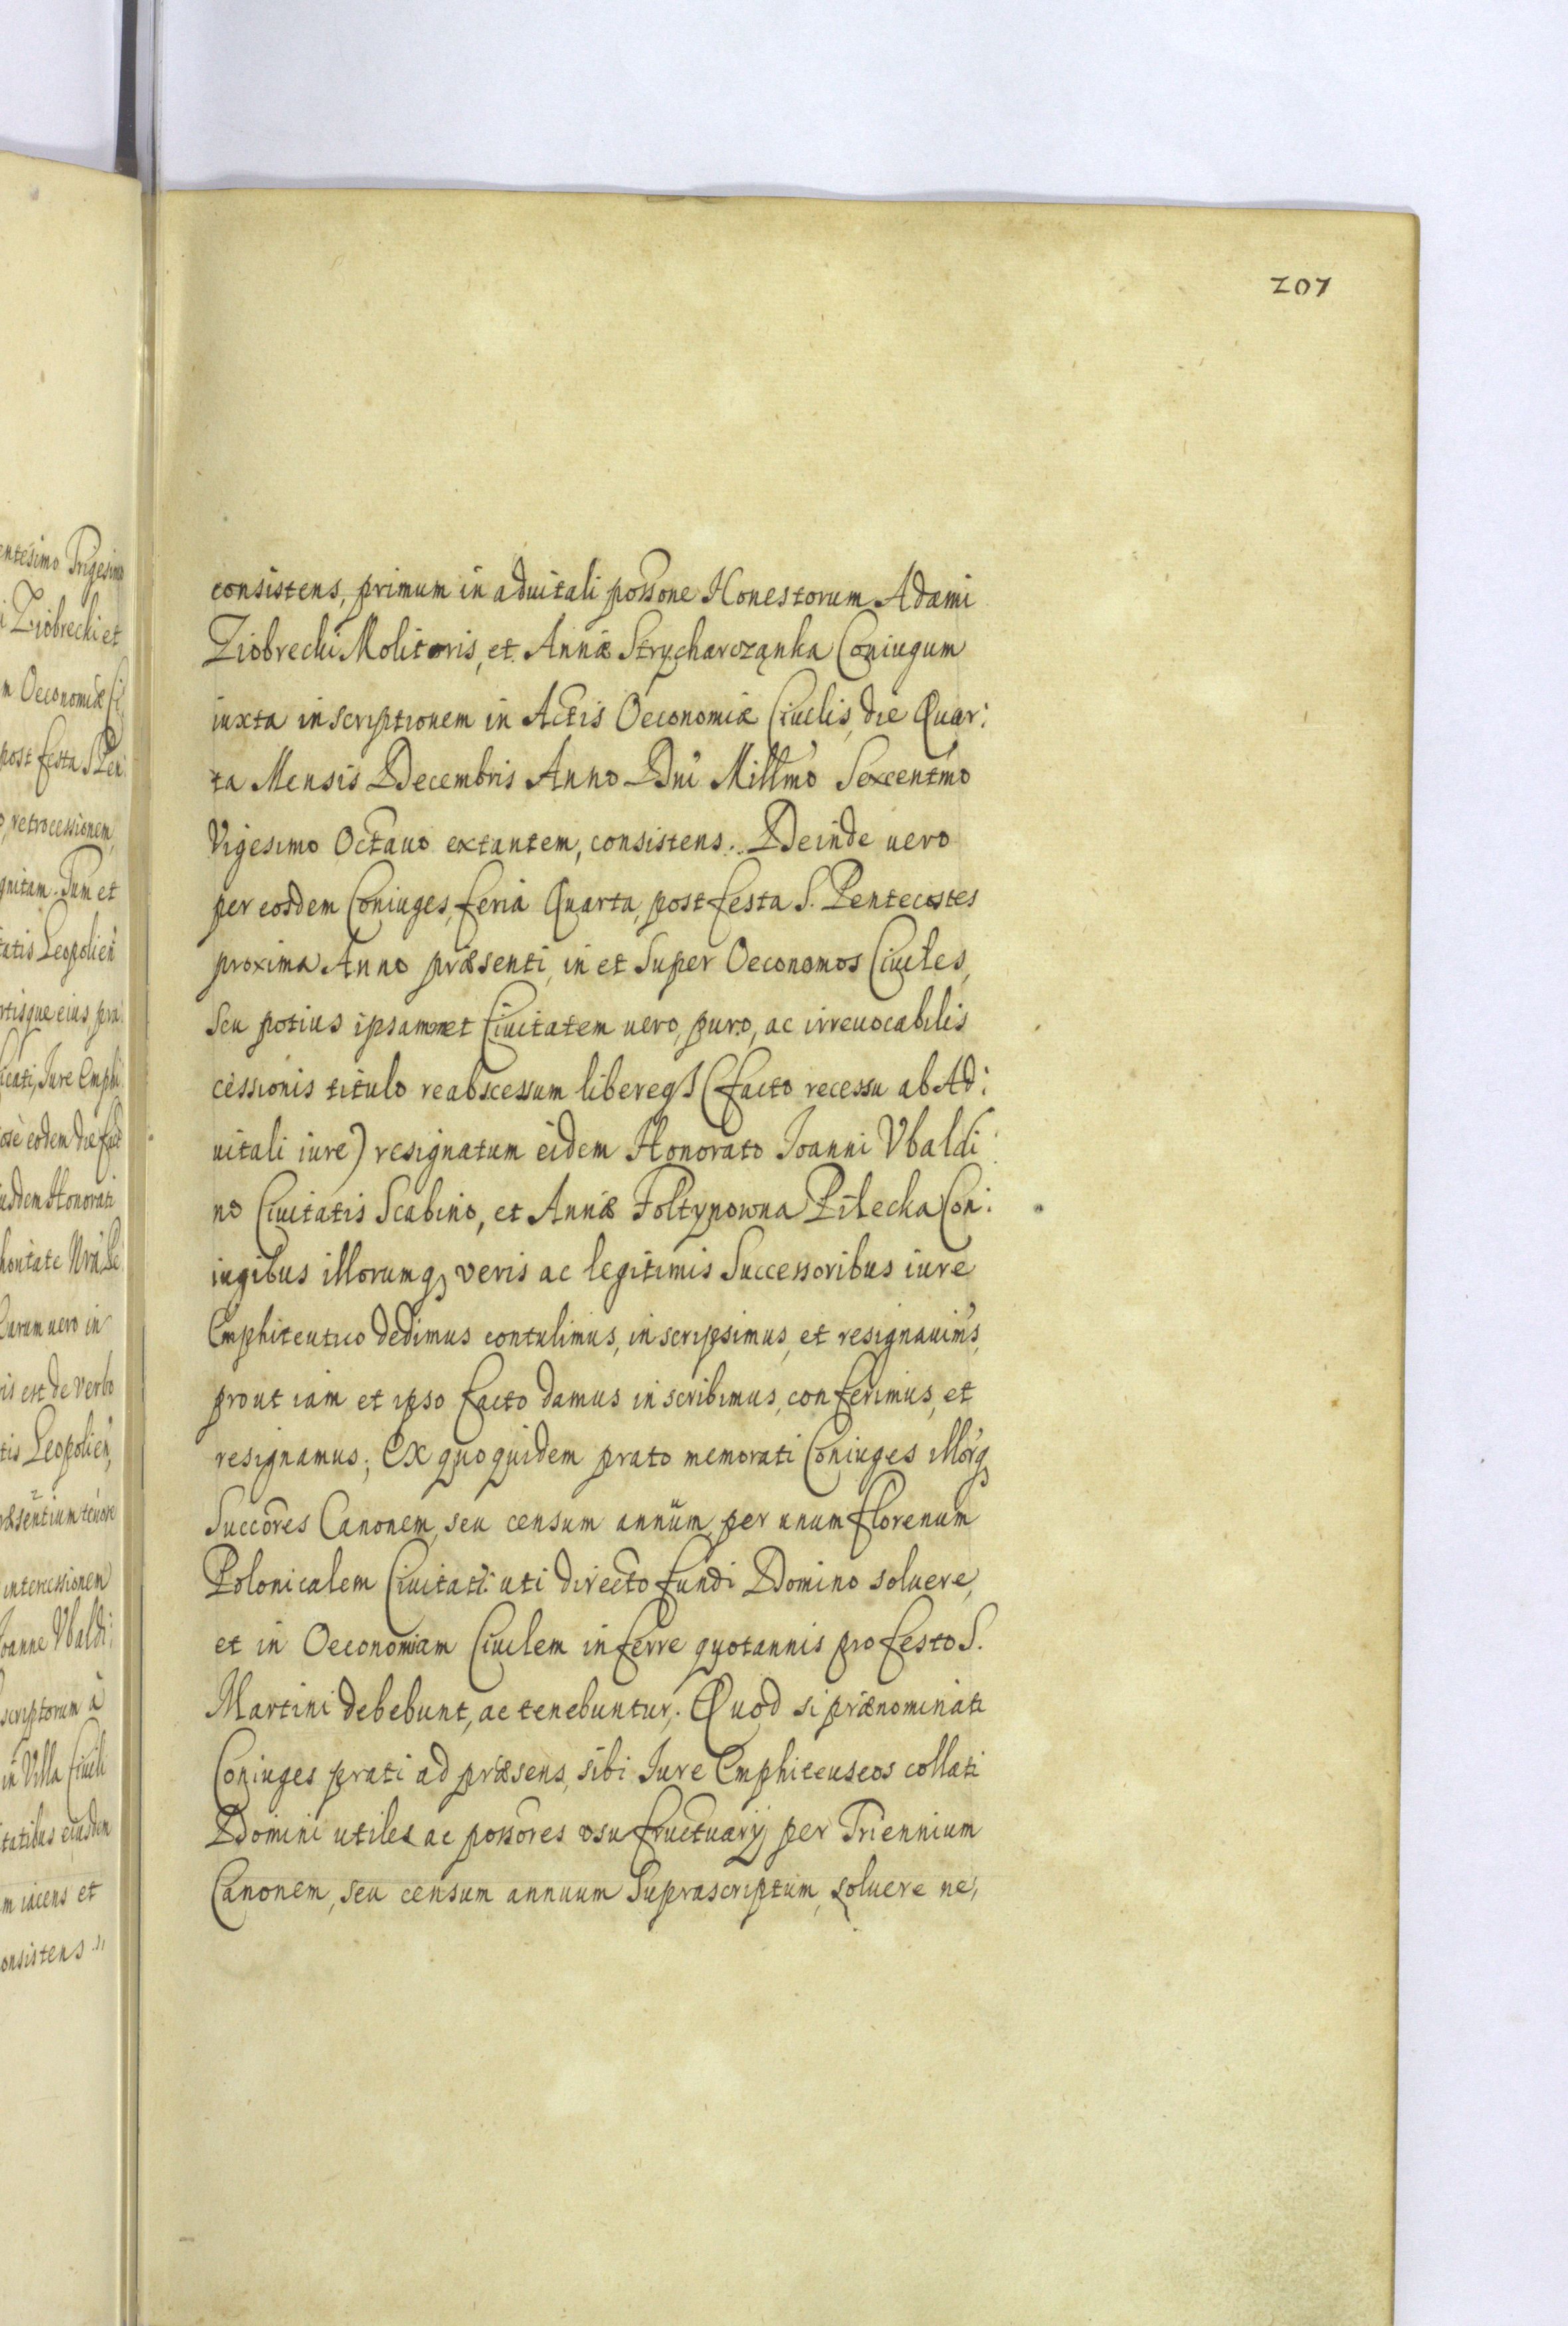 entesimo Trigesimo
i Ziobrecki et
m Oeconomiæ Ci
post festa S Pen
retrocessionem,
gnitam. Tum et
tatis Leopolien
rtisque eius, pra
icati, Jure Emphi
eodem die
usdem Honorati
Curam uero in
is est de verbo
tis Leopolien,
æsentium tenore
intercessionem
Joanne Vbaldi:
scriptorum à
in Villa Ciuili
tatibus eiusdem
m iacens et
onsistens
207
consistens, primum in aduitali possone Honestorum Adami
Ziobrecki Molitoris, et Annæ Strycharcząnka Coniugum
iuxta inscriptionem in Actis Oeconomiæ Ciuelis, die Quar:
ta Mensis Decembris Anno Dni Millmo Sexcentmo
Vigesimo Octauo extantem, consistens. Deinde uero
per eosdem Coniuges, feria Quarta, post festa S. Pentecostes
proxima Anno præsenti, in et super Oeconomos Ciuiles,
seu potius ipsammet Ciuitatem uero, puro, ac irreuocabilis
cessionis titulo reabscessum libereqs (facto recessu ab Ad:
uitali iure) resignatum eidem Honorato Joanni Vbaldi
no Ciuitatis Scabino, et Annæ Foltynowna Piłecka Con:
iugibus illorumqs veris ac legitimis Successoribus iure
Emphiteutico dedimus contulimus, inscripsimus, et resignauims,
prout iam et ipso facto damus inscribimus, conferimus, et
resignamus; Ex quo quidem prato memorati Coniuges illorq
Succores Canonem, seu censum annum per unum florenum
Polonicalem Ciuitati: uti directo fundi Domino soluere,
et in Oeconomiam Ciuilem inferre quotannis pro festo S.
Martini debebunt, ac tenebuntur. Quod si prænominati
Coniuges prati ad præsens, sibi Iure Emphiteuseos collati
Domini utiles ac possores usufructuarij per Triennium
Canonem, seu censum annuum suprascriptum, soluere ne,